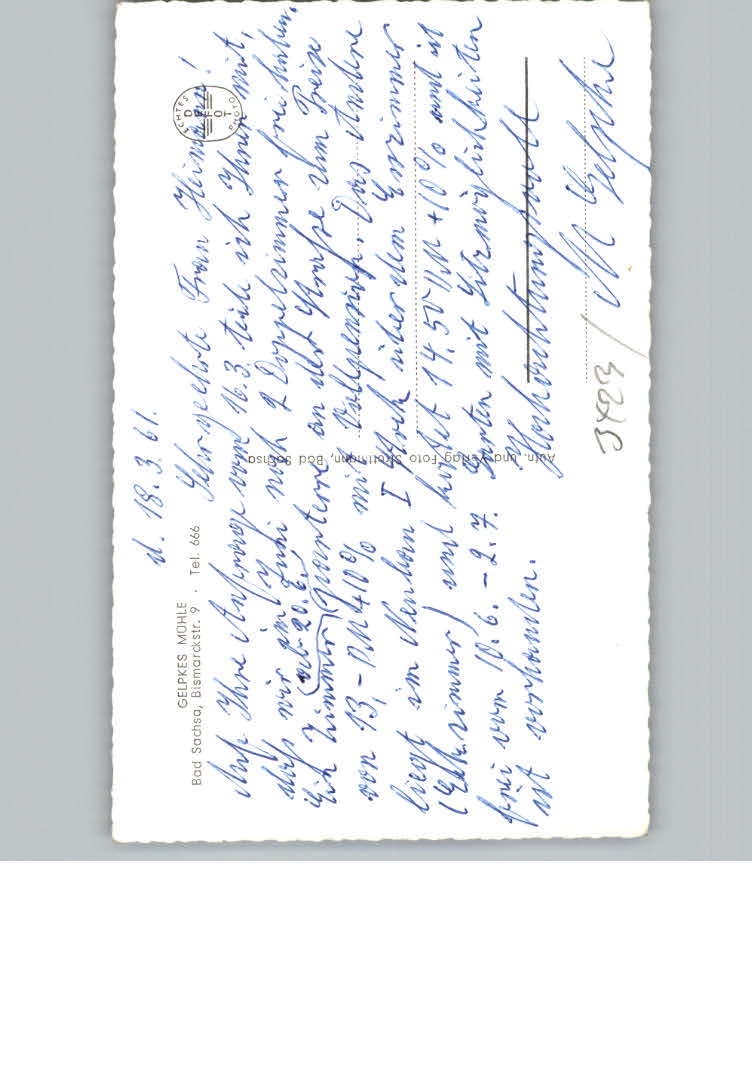 GELPKES MÜHLE
Bad Sachsa, Bismarckstr. 9 · Tel. 666
d. 18.3.61.
Sehr geehrte Frau
Auf Ihre Anfrage vom 16.3. teile ich Ihnen mit,
daß wir im Juni noch 2 Doppelzimmer frei haben.
Ein Zimmer (ab 20.6.) parterre an der Straße zum Preise
von 13,- DM +10% mit Vollpension. Das Andere
liegt im Neubau I. Stock über dem Eßzimmer
(Eckzimmer) und kostet 14.50 DM +10% und ist
frei vom 10.6. - 2.7. Garten mit Sitzmöglichkeiten
ist vorhanden.
Hochachtungsvoll
M Gelpke
ECHTES PHOTO
Aufn. und Verlag Foto Bad Sachsa